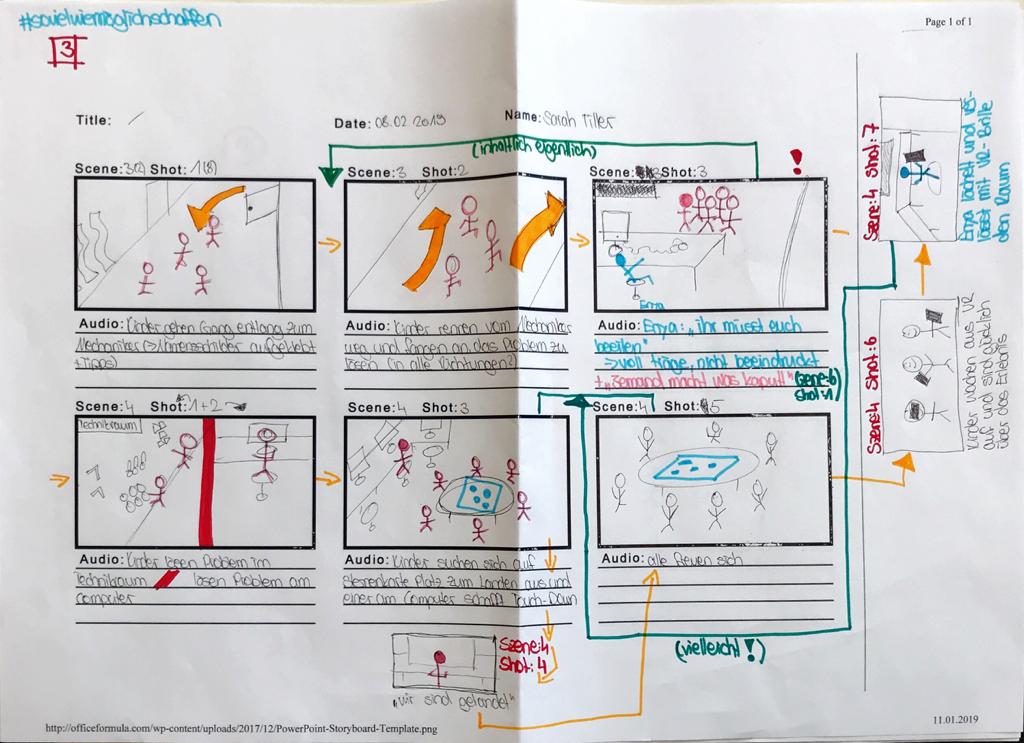 #sovielwiemöglichschaffen
3
Page 1 of 1
Title: /
Date: 08.02.2019
Name: Sarah Tiller
(inhaltlich eigentlich)
Scene: 3(2) Shot: 1(8)
Audio: Kinder gehen Gang entlang zum
Mechaniker (→ Namensschilder aufgeklebt
+ Tipps)
Scene: 3 Shot: 2
Audio: Kinder rennen vom Mechaniker
weg und fangen an das Problem zu
lösen (in alle Richtungen?)
Scene: 3 Shot: 3
!
Enya
Audio: Enya: „ihr müsst euch
beeilen"
→ voll träge, nicht beeindruckt
+ „Jemand macht was kaputt"
(Szene: 6
Shot: 1)
Scene: 4 Shot: 1+2
Technikraum
Audio: Kinder lösen Problem im
Technikraum / lösen Problem am
Computer
Scene: 4 Shot: 3
Audio: Kinder suchen sich auf
Sternenkarte Platz zum Landen aus und
einer am Computer schafft Touch-Down
Szene: 4
Shot: 4
„wir sind gelandet"
Scene: 4 Shot: 5
Audio: alle freuen sich
(vielleicht!)
Szene: 4 Shot: 6
Kinder wachen aus VR
auf und sind glücklich
über das Erlebnis
Szene: 4 Shot: 7
Enya lächelt und ver-
lässt mit VR-Brille
den Raum
http://officeformula.com/wp-content/uploads/2017/12/PowerPoint-Storyboard-Template.png
11.01.2019